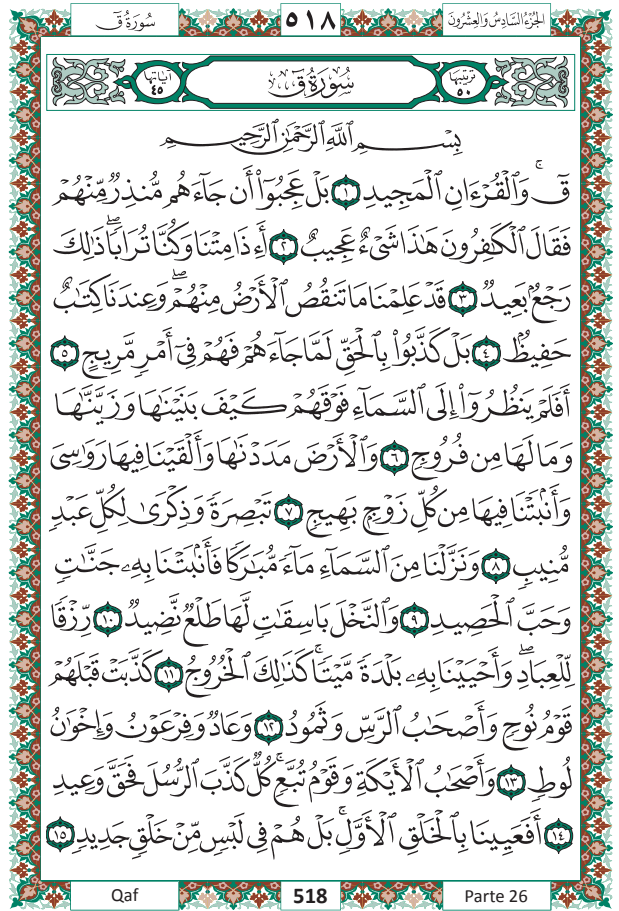 الجُزْءُ السَّادِسُ وَالعِشْرُونَ ٥١٨ سُورَةُ قٓ
تَرْتِيبُهَا ٥٠ سُورَةُ قٓ آيَاتُهَا ٤٥
بِسْمِ ٱللَّهِ ٱلرَّحْمَٰنِ ٱلرَّحِيمِ
قٓۚ وَٱلْقُرْءَانِ ٱلْمَجِيدِ ١ بَلْ عَجِبُوٓا۟ أَن جَآءَهُم مُّنذِرٌ مِّنْهُمْ
فَقَالَ ٱلْكَٰفِرُونَ هَٰذَا شَىْءٌ عَجِيبٌ ٢ أَءِذَا مِتْنَا وَكُنَّا تُرَابًاۖ ذَٰلِكَ
رَجْعٌۢ بَعِيدٌ ٣ قَدْ عَلِمْنَا مَا تَنقُصُ ٱلْأَرْضُ مِنْهُمْۖ وَعِندَنَا كِتَٰبٌ
حَفِيظٌۢ ٤ بَلْ كَذَّبُوا۟ بِٱلْحَقِّ لَمَّا جَآءَهُمْ فَهُمْ فِىٓ أَمْرٍ مَّرِيجٍ ٥
أَفَلَمْ يَنظُرُوٓا۟ إِلَى ٱلسَّمَآءِ فَوْقَهُمْ كَيْفَ بَنَيْنَٰهَا وَزَيَّنَّٰهَا
وَمَا لَهَا مِن فُرُوجٍ ٦ وَٱلْأَرْضَ مَدَدْنَٰهَا وَأَلْقَيْنَا فِيهَا رَوَٰسِىَ
وَأَنۢبَتْنَا فِيهَا مِن كُلِّ زَوْجٍۭ بَهِيجٍ ٧ تَبْصِرَةً وَذِكْرَىٰ لِكُلِّ عَبْدٍ
مُّنِيبٍ ٨ وَنَزَّلْنَا مِنَ ٱلسَّمَآءِ مَآءً مُّبَٰرَكًا فَأَنۢبَتْنَا بِهِۦ جَنَّٰتٍ
وَحَبَّ ٱلْحَصِيدِ ٩ وَٱلنَّخْلَ بَاسِقَٰتٍ لَّهَا طَلْعٌ نَّضِيدٌ ١٠ رِّزْقًا
لِّلْعِبَادِۖ وَأَحْيَيْنَا بِهِۦ بَلْدَةً مَّيْتًاۚ كَذَٰلِكَ ٱلْخُرُوجُ ١١ كَذَّبَتْ قَبْلَهُمْ
قَوْمُ نُوحٍ وَأَصْحَٰبُ ٱلرَّسِّ وَثَمُودُ ١٢ وَعَادٌ وَفِرْعَوْنُ وَإِخْوَٰنُ
لُوطٍ ١٣ وَأَصْحَٰبُ ٱلْأَيْكَةِ وَقَوْمُ تُبَّعٍۚ كُلٌّ كَذَّبَ ٱلرُّسُلَ فَحَقَّ وَعِيدِ
١٤ أَفَعَيِينَا بِٱلْخَلْقِ ٱلْأَوَّلِۚ بَلْ هُمْ فِى لَبْسٍ مِّنْ خَلْقٍ جَدِيدٍ ١٥
Qaf 518 Parte 26